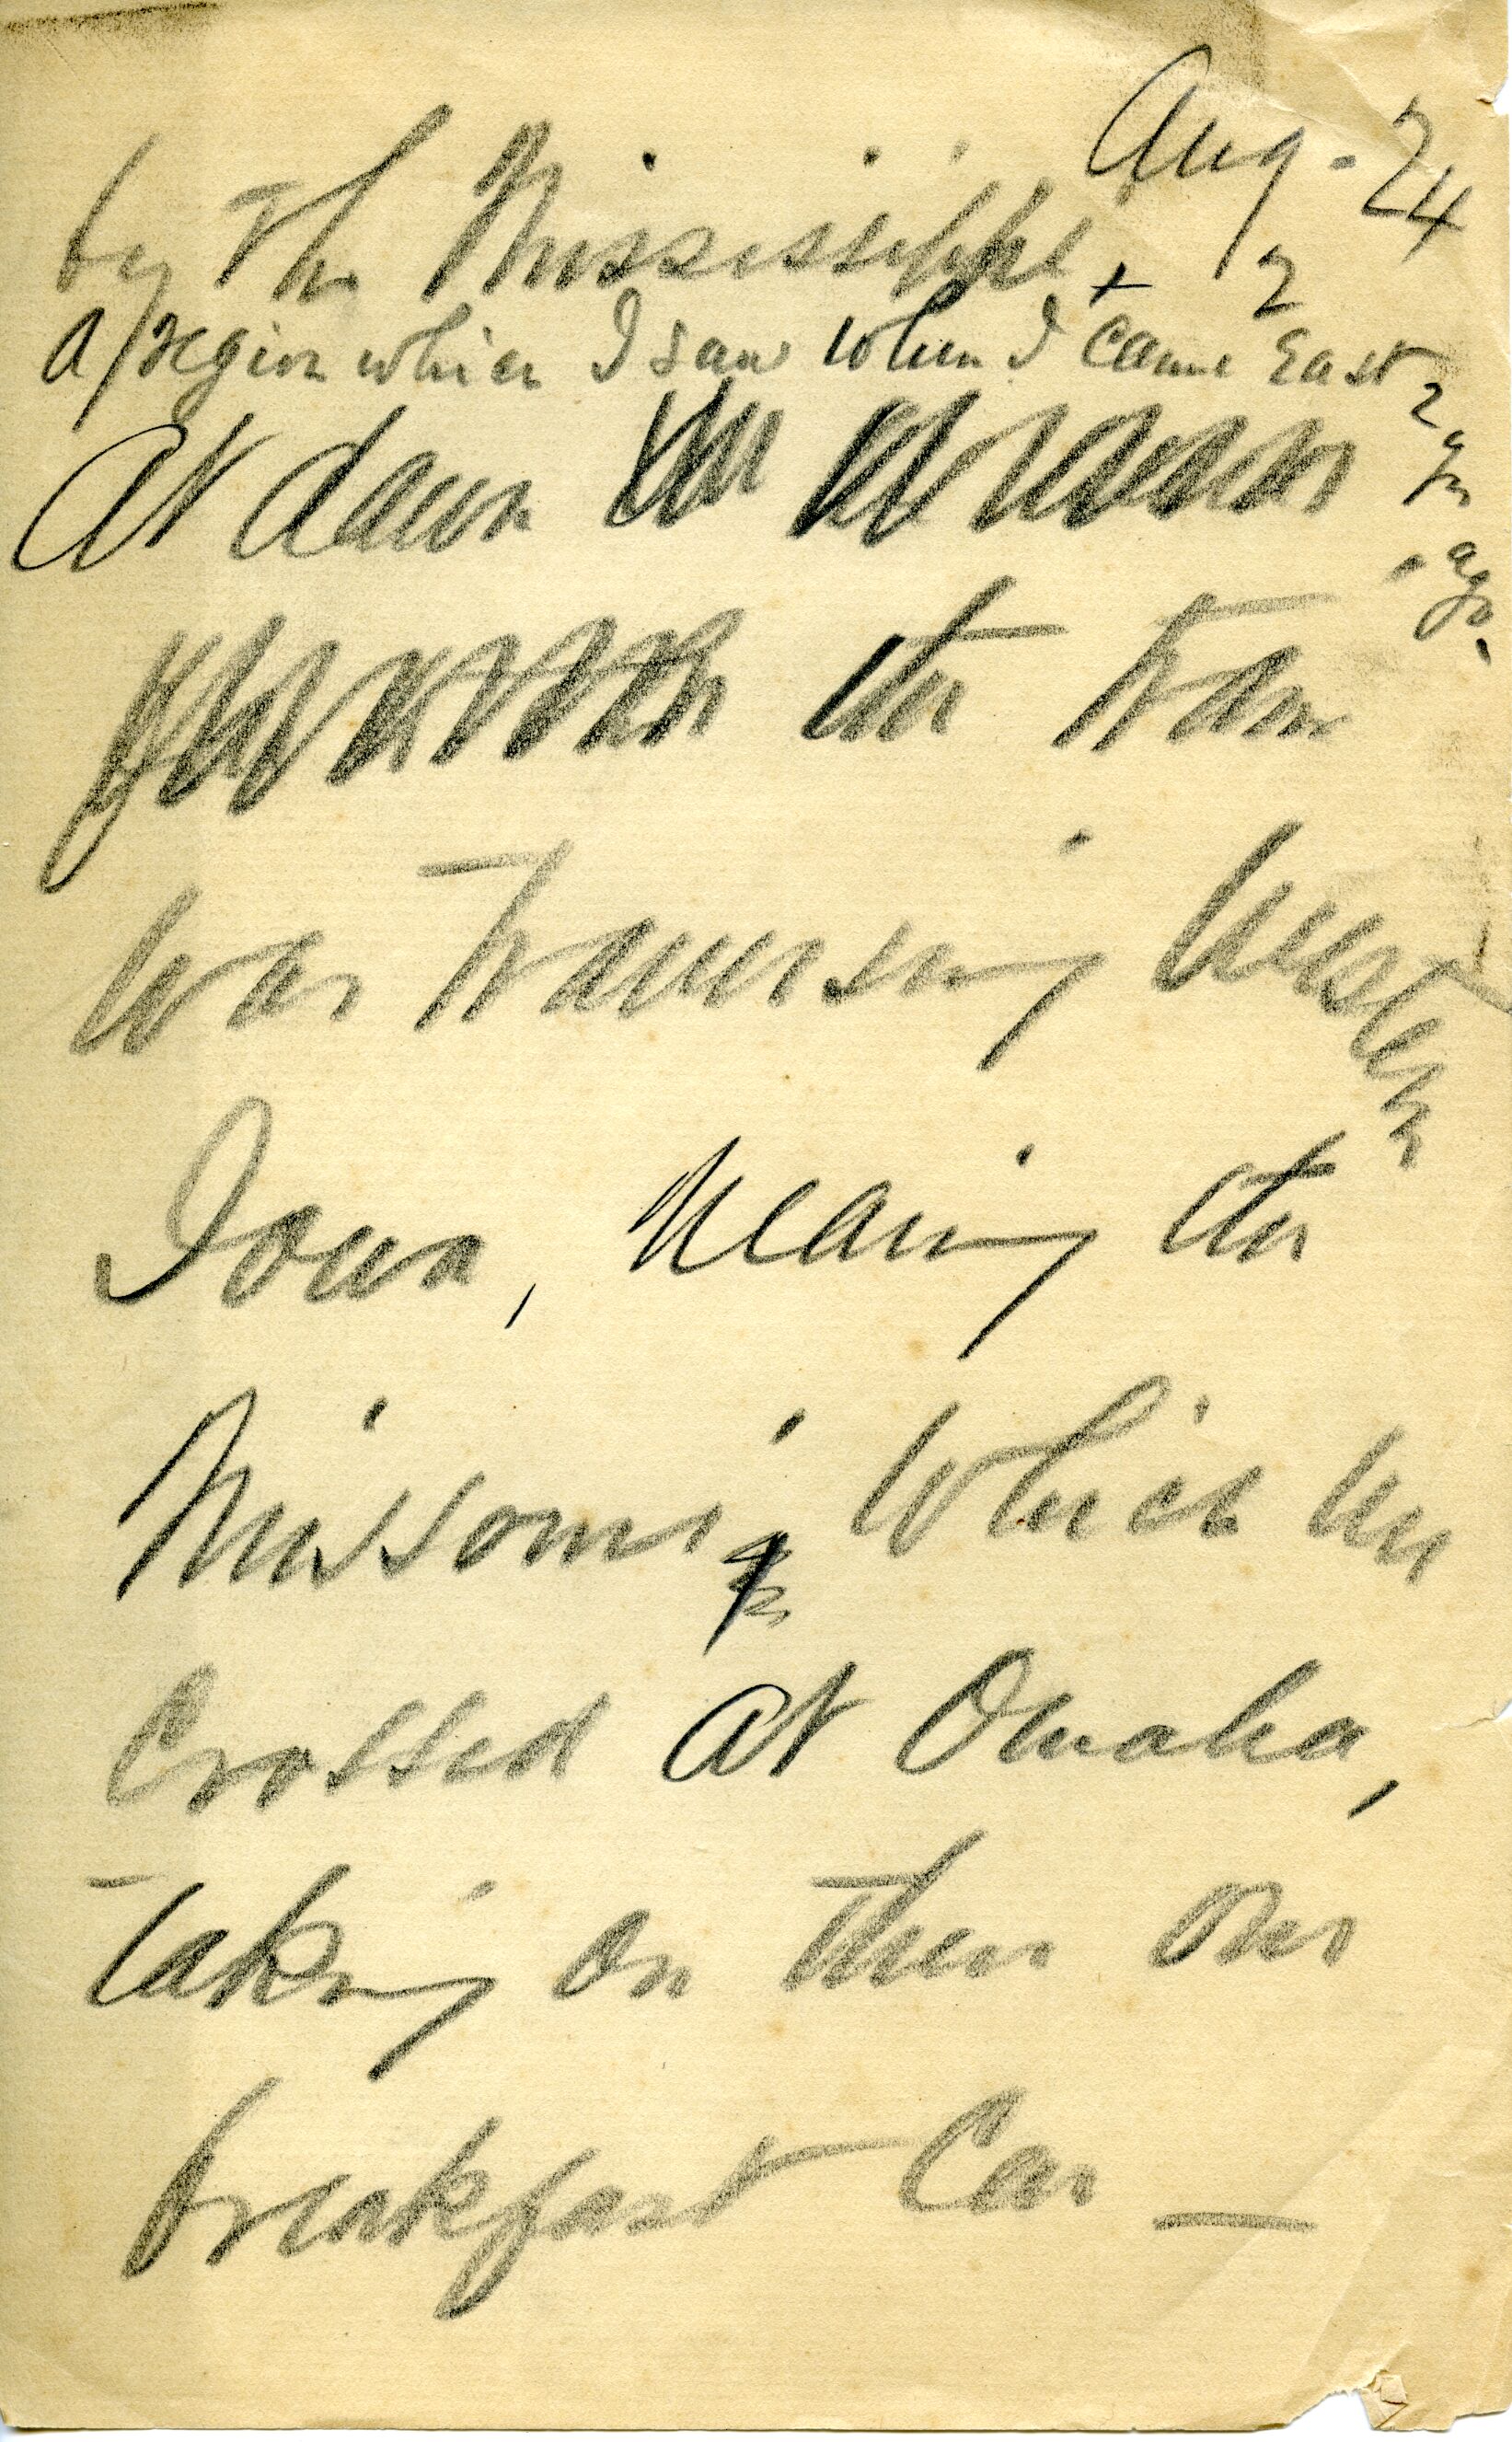 Aug - 24
by the Mississippi +
2
A region which I saw when I came East 2 yrs ago.
At dawn
the train
was traversing western
Iowa, nearing the
Missouri, which we
crossed at Omaha,
taking on there our
breakfast car —